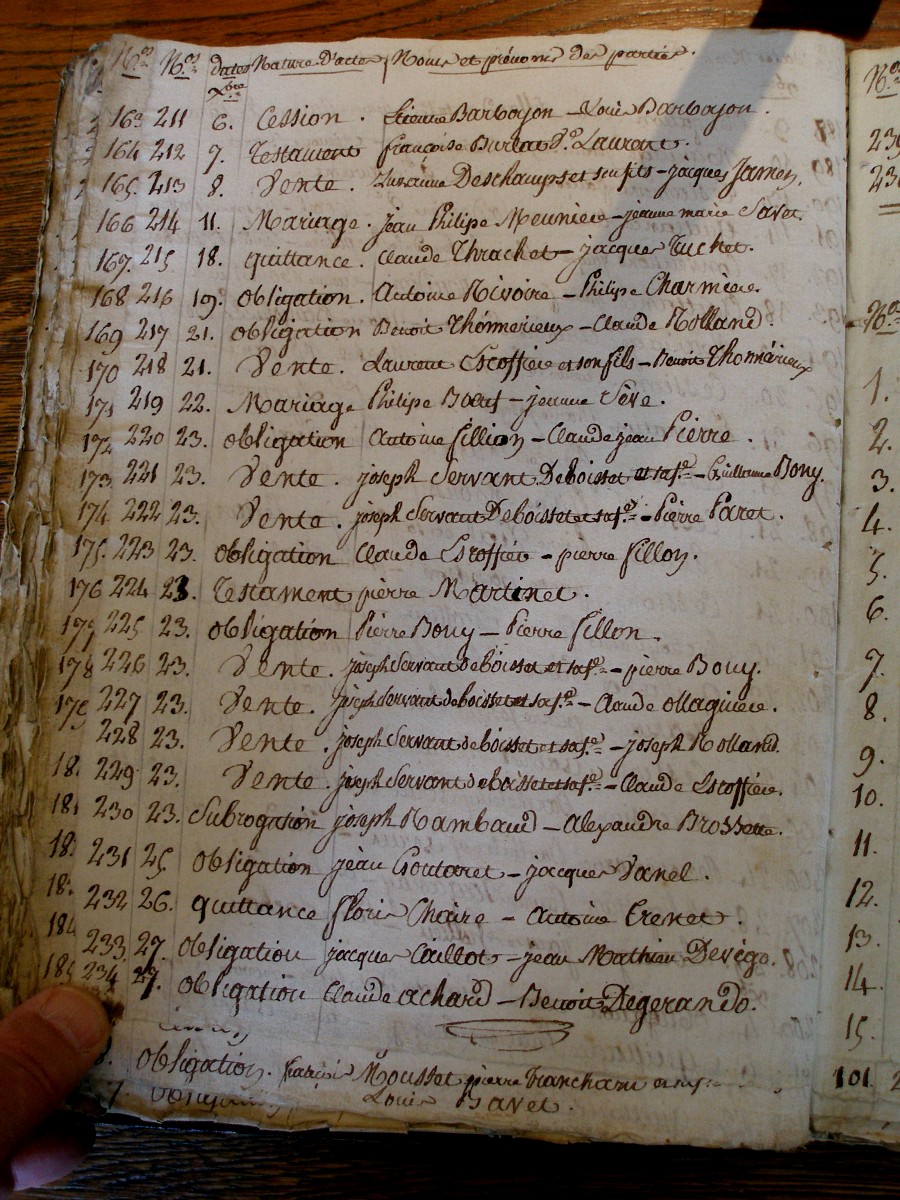 N.os N.os dates Nature D'actes Noms et prénoms des parties.
Xbre
163 211 6. Cession. Etienne Barboyon – Louis Barboyon.
164 212 7. Testament françoise Burlat V.e Laurent.
165. 213 8. Vente. Suzanne Deschamps et son fils – jacques Jamen.
166 214 11. Mariage. jean Philipe Meuniere – jeanne marie Savet.
167. 215 18. quittance. Claude Thrachet – jacques Tuchet.
168 216 19. obligation. Antoine Rivoire – Philipe Charmiere.
169 217 21. obligation Benoit Thomerieux – Claude Rolland.
170 218 21. Vente. Laurent Escoffiere et son fils – Benoit Thomérieux
171 219 22. Mariage Philipe Boeuf – jeanne Sève.
172 220 23. obligation Antoine fillion – Claude jean Pierre.
173 221 23. Vente. joseph Servant Deboisset et sa f.e – Guillaume Bony.
174 222 23. Vente. joseph Servant Deboisset et sa f.e – Pierre Faret.
175. 223 23. obligation Claude Escoffiér – pierre fillon.
176 224 23. Testament pierre Martinet.
177 225 23. obligation Pierre Bony – Pierre fillon.
178 226 23. Vente. joseph Servant deboisset et sa f.e – pierre Bony.
179 227 23. Vente. joseph Servant deboisset et sa f.e – Claude ollagniere.
228 23. Vente. joseph Servant deboisset et sa f.e – joseph Rolland.
18. 229 23. Vente. joseph Servant deboisset et sa f.e – Claude Escoffiere.
181 230 23. Subrogation joseph Rambaud – Alexandre Brossette.
18. 231 25. obligation jean Goutaret – jacques Vanel.
18. 232 26. quittance floris Chaire – Antoine Crenet.
184 233. 27. obligation jacques Caillot – jean Mathieu Devégo.
185 234 27. obligation Claude achard – Benoit Degerando.
obligation. françois Mousset pierre Trancham
Louis Bavet.
N.os
239
23
N.os
1.
2.
3.
4.
5.
6.
7.
8.
9.
10.
11.
12.
13.
14.
15.
101. 2